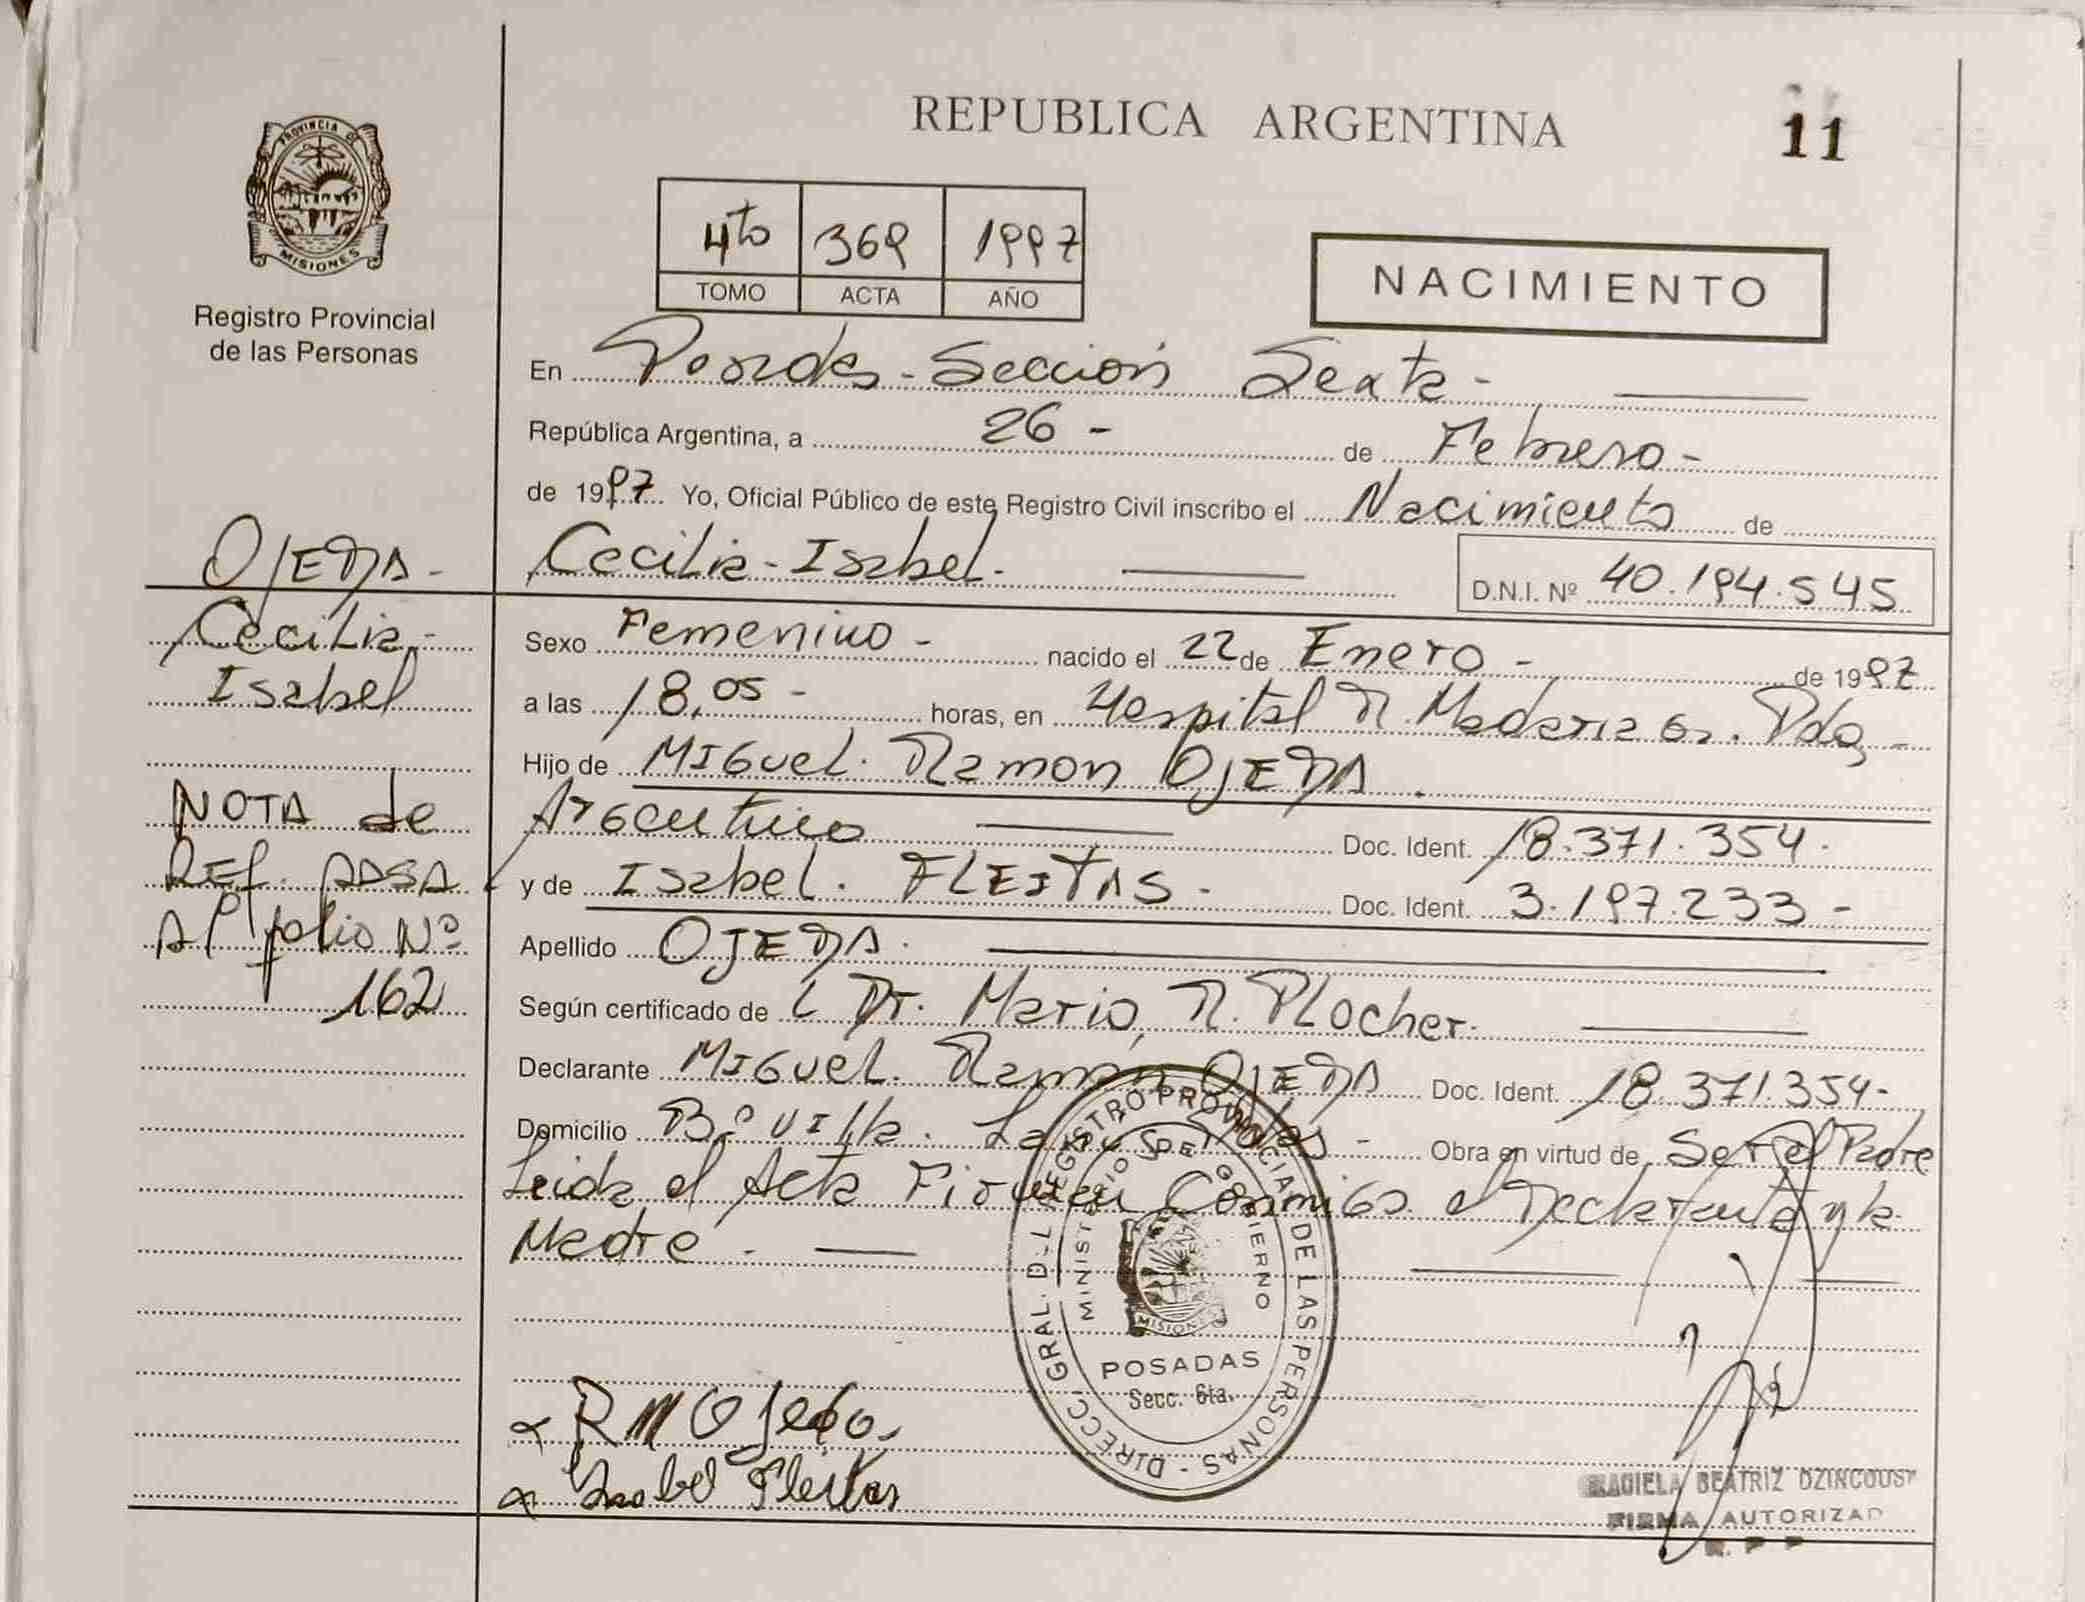 REPUBLICA ARGENTINA
11
PROVINCIA DE
MISIONES
Registro Provincial
de las Personas
4to 369 1997
TOMO ACTA AÑO
NACIMIENTO
En Posadas - Sección Sexta -
República Argentina, a 26 - de Febrero -
de 1997 Yo, Oficial Público de este Registro Civil inscribo el Nacimiento de
Cecilia - Isabel.
D.N.I. Nº 40.194.545
OJEDA -
Cecilia -
Isabel
NOTA de
REf.
Al folio Nº
162
Sexo Femenino - nacido el 22 de Enero - de 1997
a las 18,05 - horas, en Hospital R. Madariaga. Pdas -
Hijo de Miguel. Ramon OJEDA.
Argentino Doc. Ident. 18.371.354.
y de Isabel. FLEITAS - Doc. Ident. 3.197.233 -
Apellido OJEDA.
Según certificado de Dr. Mario, R. Plocher.
Declarante Miguel. Ramón OJEDA Doc. Ident. 18.371.354-
Domicilio Bº Villa. - Obra en virtud de Ser el Padre
Leida el Acta Firman Conmigo el Declarante y la
Madre -
DIRECC. GRAL. DEL REGISTRO PROVINCIAL DE LAS PERSONAS
MINISTERIO DE GOBIERNO
MISIONES
POSADAS
Secc. 6ta.
R M Ojeda
Isabel Fleitas
GRACIELA BEATRIZ DZINCOUST
FIRMA AUTORIZAD
R. P. P.